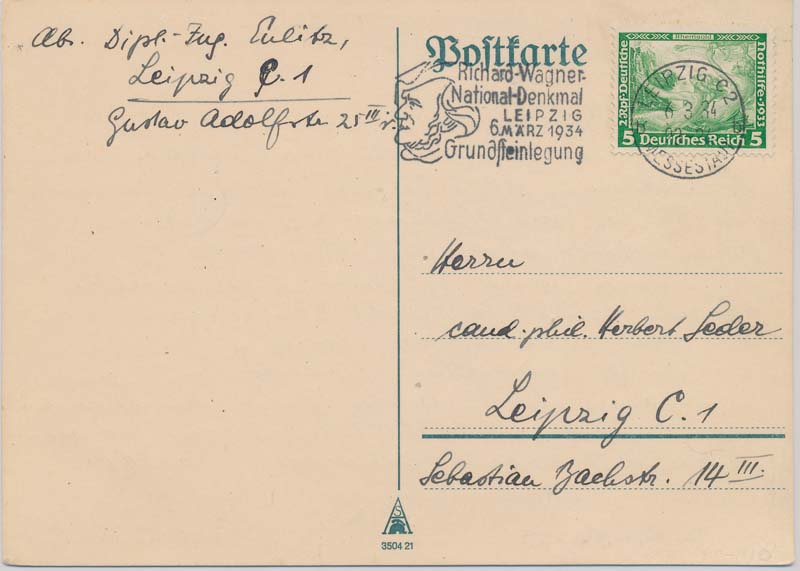 Abs. Dipl.-Ing. Eulitz,
Leipzig C. 1
Gustav Adolfstr. 25 III r.
Postkarte
Richard-Wagner-
National-Denkmal
LEIPZIG
6. MÄRZ 1934
Grundsteinlegung
Rheingold
2 Rpf. Deutsche
Nothilfe-1933
5 Deutsches Reich 5
LEIPZIG C2
6.3.34
MESSESTADT
Herrn
cand. phil. Herbert Leder
Leipzig C. 1
Sebastian Bachstr. 14 III.
3504 21